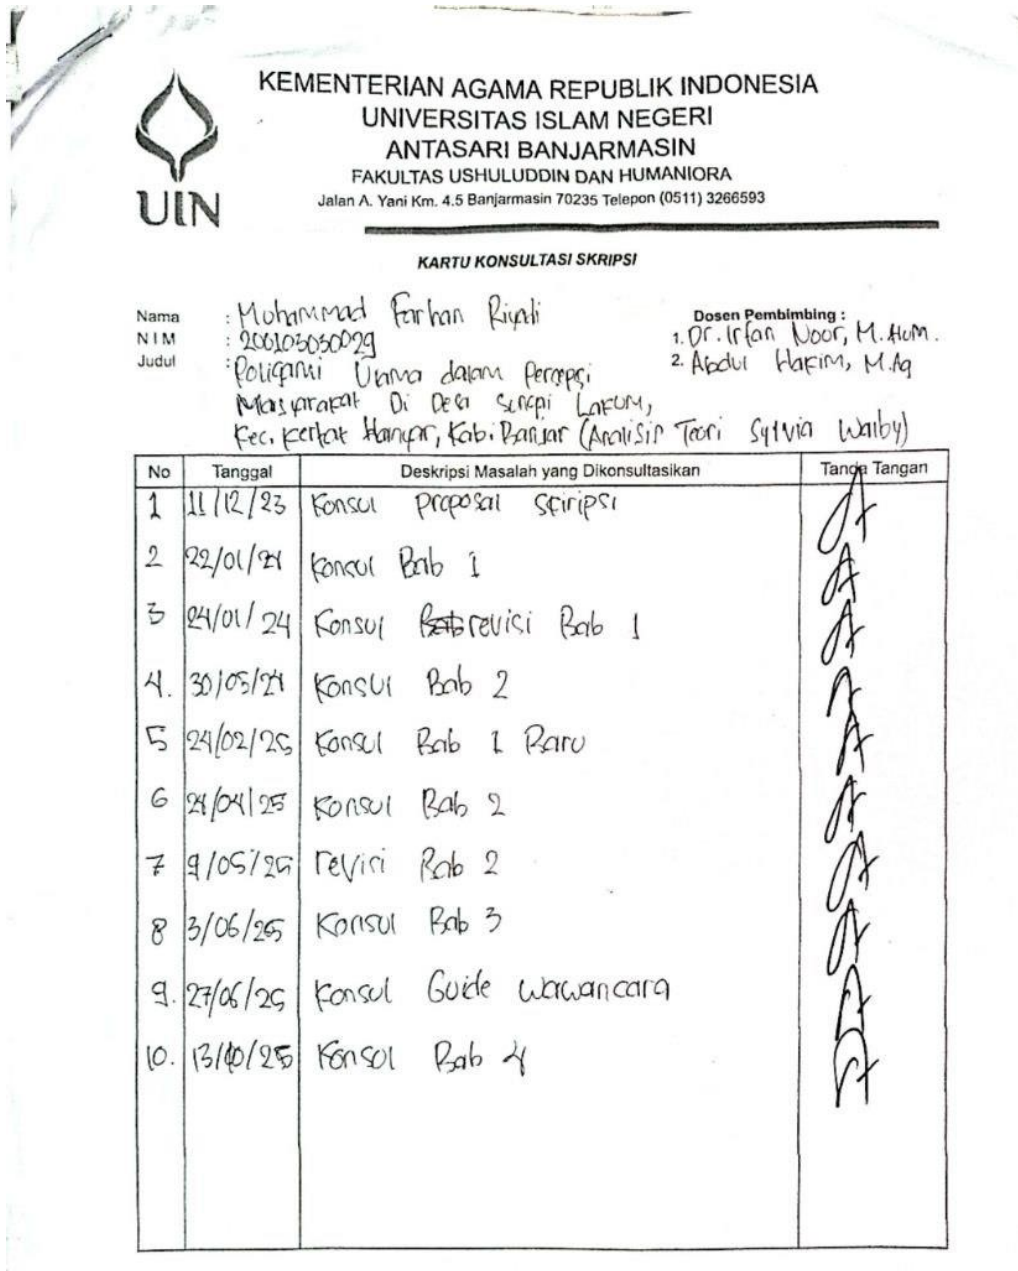 KEMENTERIAN AGAMA REPUBLIK INDONESIA
UNIVERSITAS ISLAM NEGERI
ANTASARI BANJARMASIN
FAKULTAS USHULUDDIN DAN HUMANIORA
Jalan A. Yani Km. 4.5 Banjarmasin 70235 Telepon (0511) 3266593
UIN
KARTU KONSULTASI SKRIPSI
Nama : Muhammad Farhan
NIM : 200103030029
Judul : Poligami Ulama dalam Persepsi
Masyarakat Di Desa Lakum,
Kec. Kertak Hanyar, Kab. Banjar (Analisis Teori Sylvia Walby)
Dosen Pembimbing :
1. Dr. Irfan Noor, M.Hum.
2. Abdul Hakim, M.Ag
No Tanggal Deskripsi Masalah yang Dikonsultasikan Tanda Tangan
1 11/12/23 Konsul proposal skripsi
2 22/01/24 Konsul Bab 1
3 24/01/24 Konsul revisi Bab 1
4. 30/05/24 Konsul Bab 2
5 24/02/25 Konsul Bab 1 Baru
6 24/04/25 Konsul Bab 2
7 9/05/25 revisi Bab 2
8 3/06/25 Konsul Bab 3
9. 27/06/25 Konsul Guide wawancara
10. 13/10/25 Konsul Bab 4